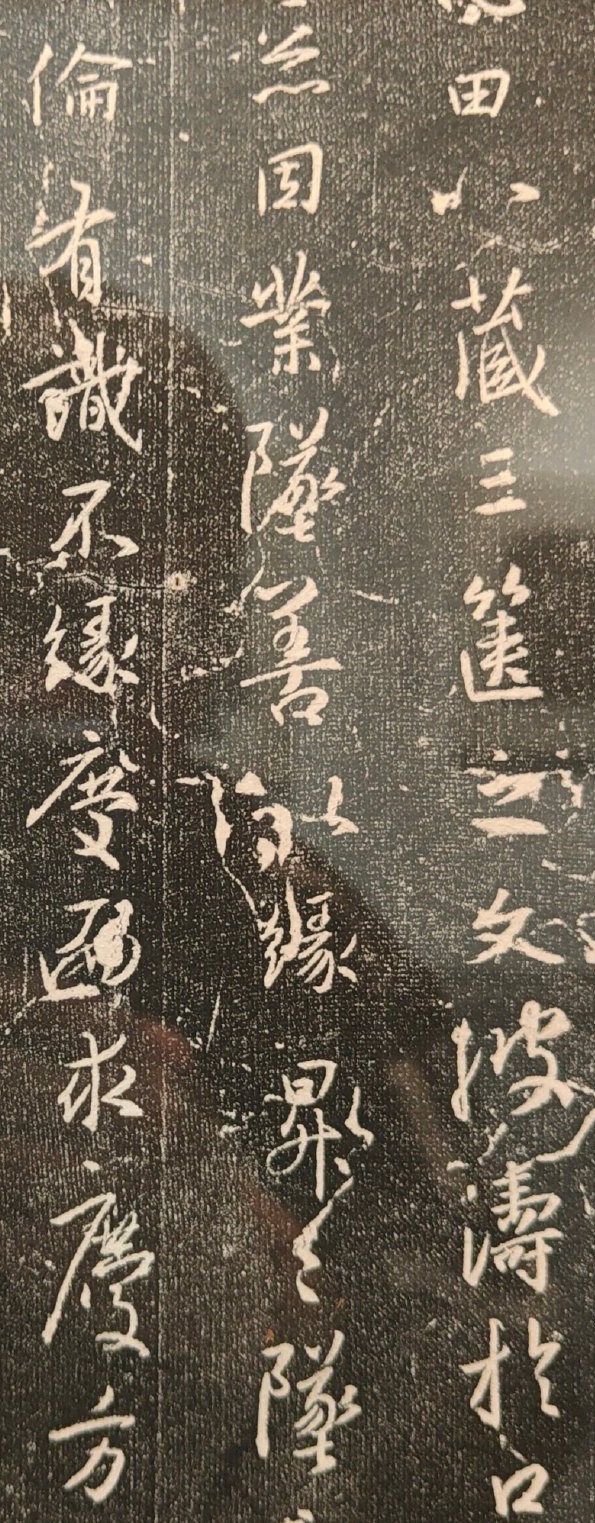 心田八藏三篋之文波濤於口
惡因業墜善以緣昇〻墜
倫有識不緣慶而求慶方